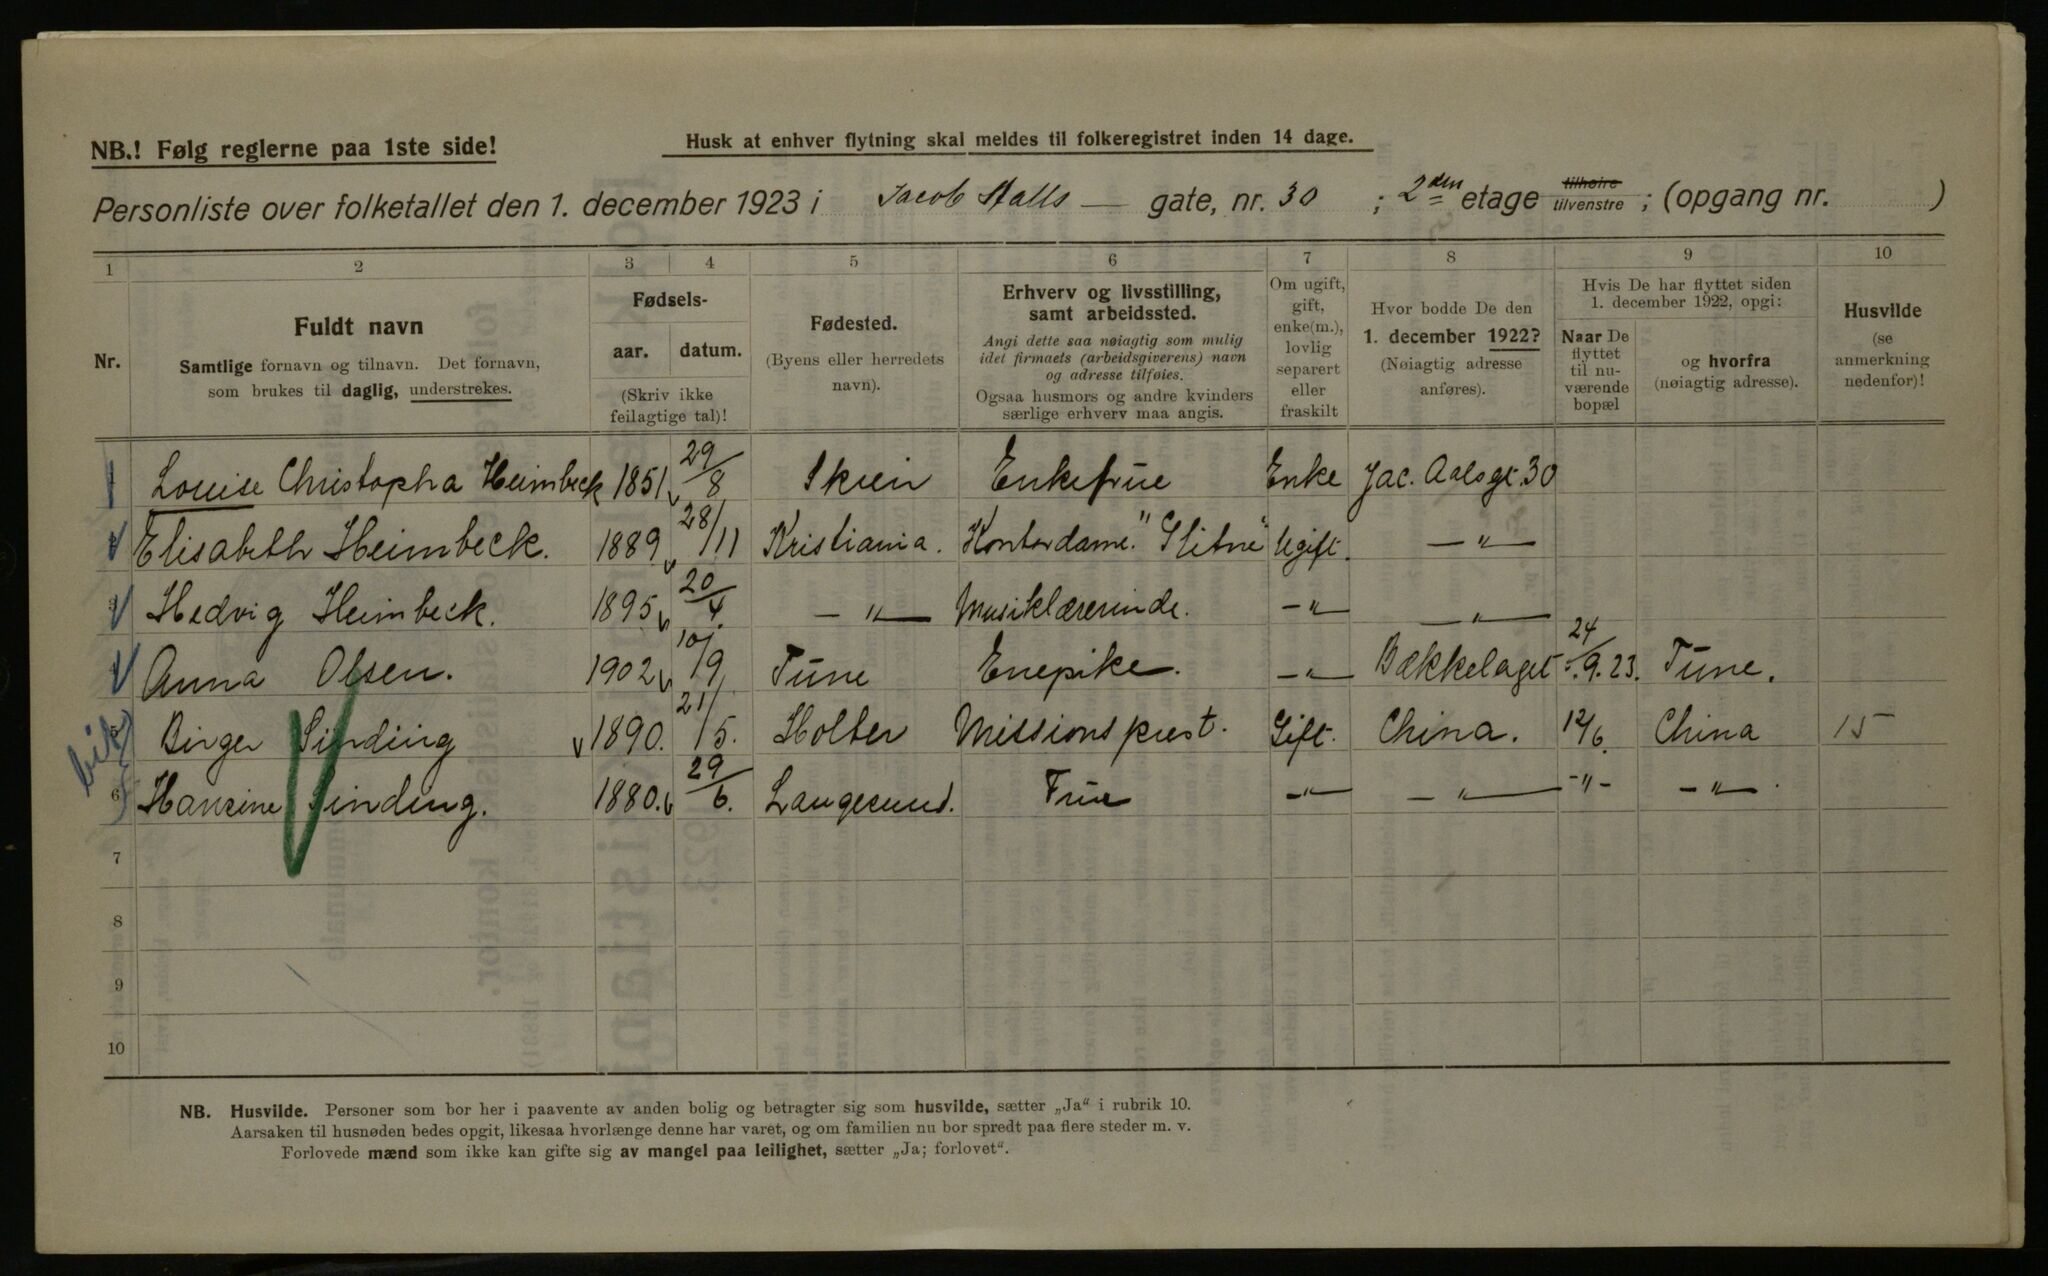 NB.! Følg reglerne paa 1ste side!
Husk at enhver flytning skal meldes til folkeregistret inden 14 dage.
Personliste over folketallet den 1. december 1923 i Jacob Aalls — gate, nr. 30 ; 2den etage tilhøire tilvenstre ; (opgang nr. )
1 2 3 4 5 6 7 8 9 10
Nr.
Fuldt navn
Samtlige fornavn og tilnavn. Det fornavn,
som brukes til daglig, understrekes.
Fødsels-
aar. datum.
(Skriv ikke
feilagtige tal)!
Fødested.
(Byens eller herredets
navn).
Erhverv og livsstilling,
samt arbeidssted.
Angi dette saa nøiagtig som mulig
idet firmaets (arbeidsgiverens) navn
og adresse tilføies.
Ogsaa husmors og andre kvinders
særlige erhverv maa angis.
Om ugift,
gift,
enke(m.),
lovlig
separert
eller
fraskilt
Hvor bodde De den
1. december 1922?
(Nøiagtig adresse
anføres).
Hvis De har flyttet siden
1. december 1922, opgi:
Naar De
flyttet
til nu-
værende
bopæl
og hvorfra
(nøiagtig adresse).
Husvilde
(se
anmerkning
nedenfor)!
1 Louise Christopha Heimbeck 1851 29/8 Skien Enkefrue Enke Jac. Aalsgt. 30
2 Elisabeth Heimbeck. 1889 28/11 Kristiania. Kontordame. Ugift. — " —
3 Hedvig Heimbeck. 1895 20/4. — " — Musiklærerinde. — " — — " —
4 Anna Olsen. 1902 10/9 Tune Enepike. — " — Bækkelaget 24/9. 23. Tune.
5 Birger Sinding 1890. 21/5. Holter Missionsprest. Gift. China. 12/6. China 15
6 Hansine Sinding. 1880. 29/6. Langesund. Frue — " — — " — - " - — " — .
7
8
9
10
NB. Husvilde. Personer som bor her i paavente av anden bolig og betragter sig som husvilde, sætter „Ja“ i rubrik 10.
Aarsaken til husnøden bedes opgit, likesaa hvorlænge denne har varet, og om familien nu bor spredt paa flere steder m. v.
Forlovede mænd som ikke kan gifte sig av mangel paa leilighet, sætter „Ja; forlovet“.